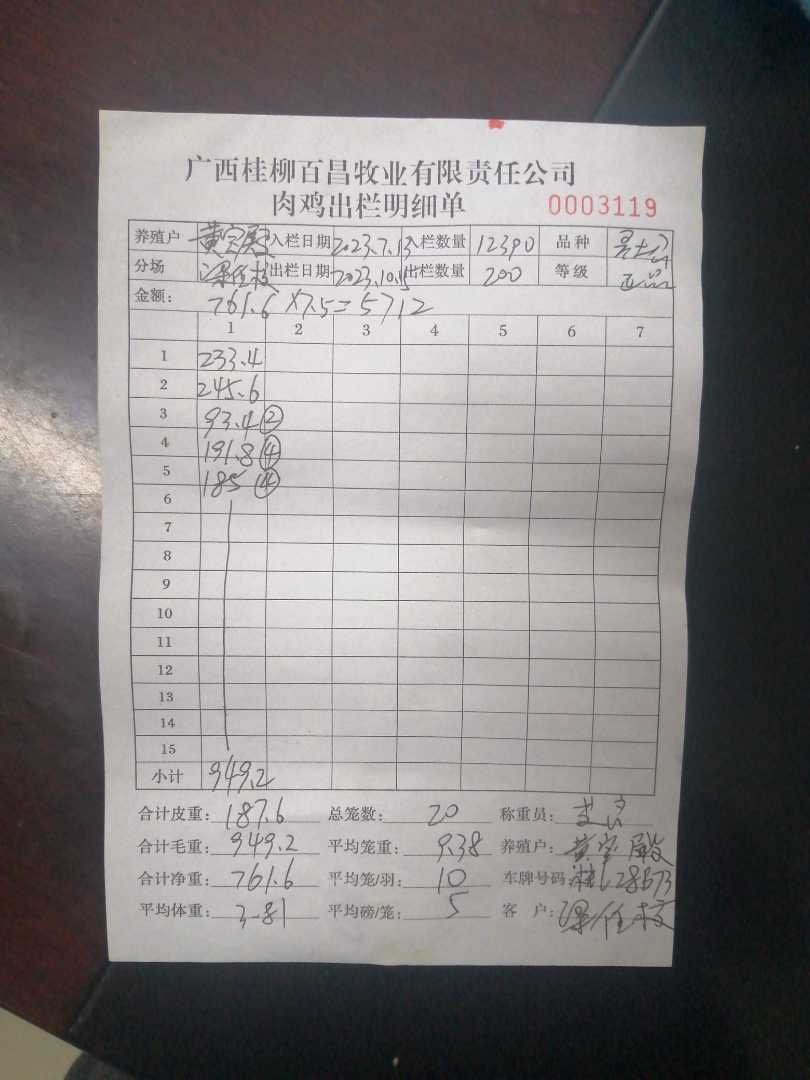 广西桂柳百昌牧业有限责任公司
肉鸡出栏明细单 0003119
养殖户 黄 入栏日期 2023.7.13 入栏数量 12390 品种
分场 梁任 出栏日期 2023.10.15 出栏数量 200 等级 正品
金额: 761.6 ×7.5=5712
1 2 3 4 5 6 7
1 233.4
2 245.6
3 93.4②
4 191.8④
5 185④
6
7
8
9
10
11
12
13
14
15
小计 949.2
合计皮重: 187.6 总笼数: 20 称重员:
合计毛重: 949.2 平均笼重: 9.38 养殖户: 黄
合计净重: 761.6 平均笼/羽: 10 车牌号码: 28673
平均体重: 3.81 平均磅/笼: 5 客户: 梁任